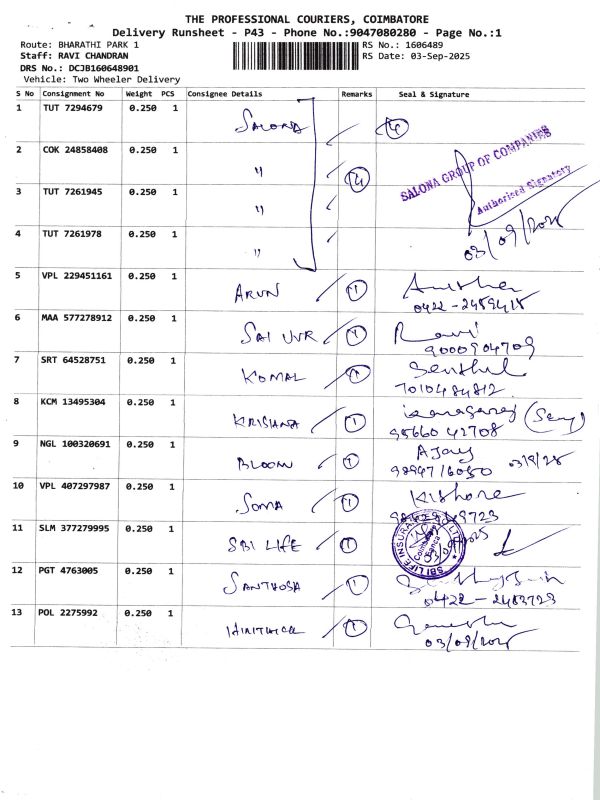 THE PROFESSIONAL COURIERS, COIMBATORE
Delivery Runsheet - P43 - Phone No.:9047080280 - Page No.:1
Route: BHARATHI PARK 1 RS No.: 1606489
Staff: RAVI CHANDRAN RS Date: 03-Sep-2025
DRS No.: DCJB160648901
Vehicle: Two Wheeler Delivery
S No Consignment No Weight PCS Consignee Details Remarks Seal & Signature
1 TUT 7294679 0.250 1 SALONA 4
SALONA GROUP OF COMPANIES
2 COK 24858408 0.250 1 " 4
Authorised Signatory
3 TUT 7261945 0.250 1 "
4 TUT 7261978 0.250 1 "
03/09/2025
5 VPL 229451161 0.250 1 ARUN 1
6 MAA 577278912 0.250 1 SAI UVR 1 Ravi
9000904709
7 SRT 64528751 0.250 1 KOMAL 1 Senthil
7010484812
8 KCM 13495304 0.250 1 KRISHNA 1
95660 42708
9 NGL 100320691 0.250 1 BLOOM 1 AJay
03/9/25
10 VPL 407297987 0.250 1 SOMA 1 Kishore
11 SLM 377279995 0.250 1 SBI LIFE 1
SBI LIFE INSURA
12 PGT 4763005 0.250 1 SANTHOSA 1
0422-2483723
13 POL 2275992 0.250 1 1
03/09/2025